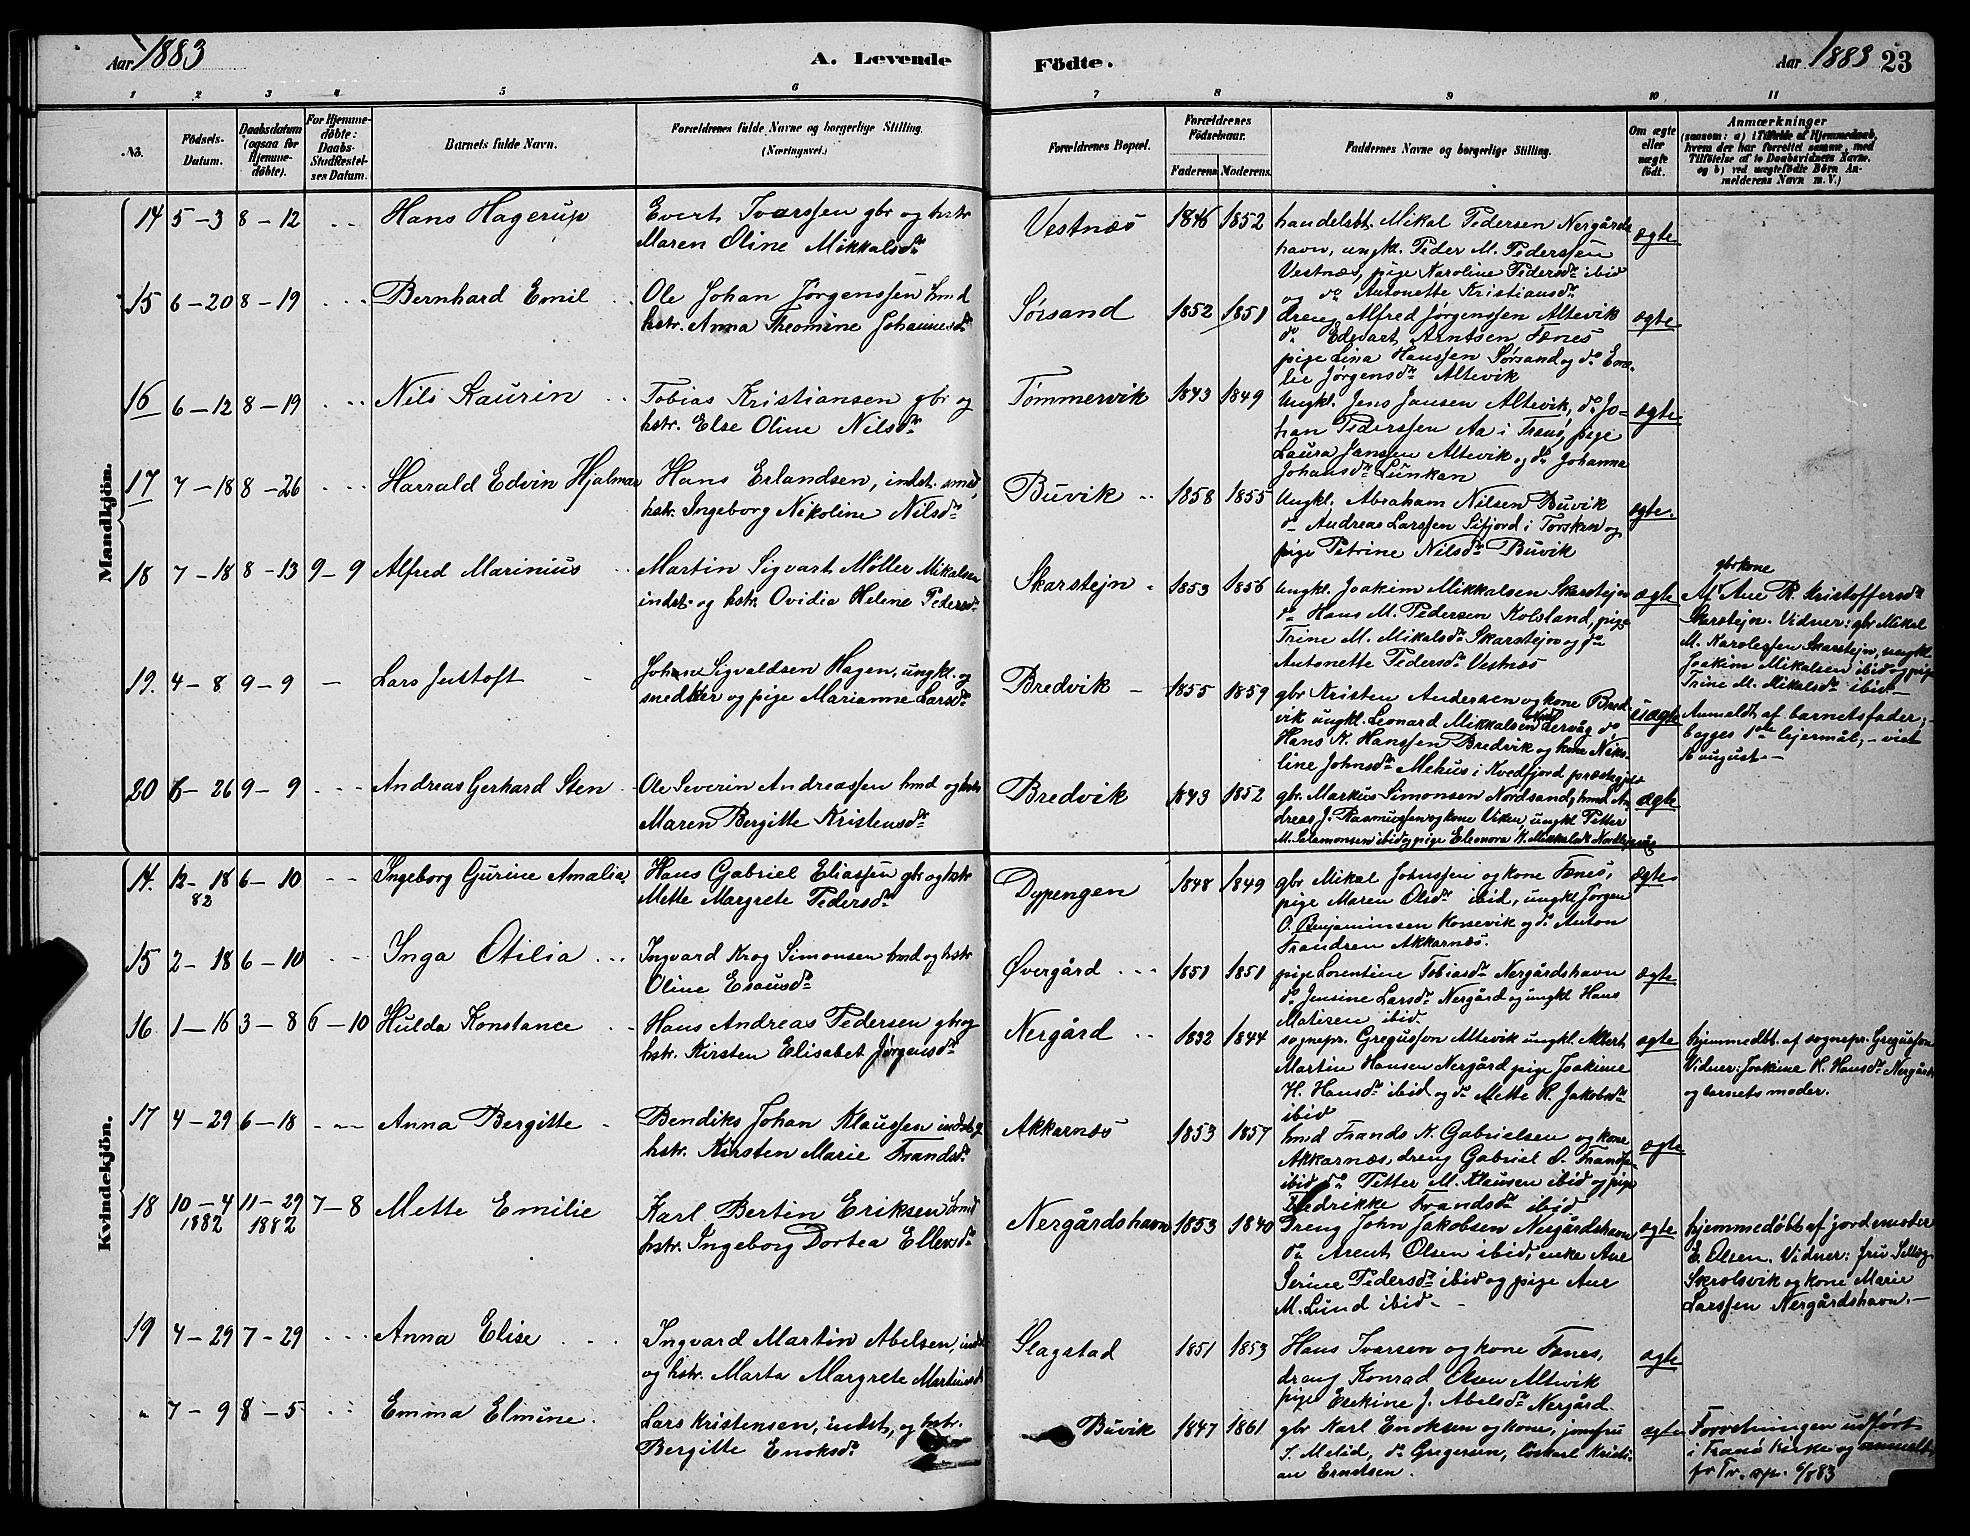 Aar 1883
A. Levende
Födte.
Aar 1883 23
1 2 3 4 5 6 7 8 9 10 11
No.
Födsels-
Datum.
Daabsdatum
(ogsaa for
Hjemme-
døbte).
For Hjemme-
døbte:
Daabs-
Stadfæstel-
ses Datum.
Barnets fulde Navn.
Forældrenes fulde Navne og borgerlige Stilling.
(Næringsvei.)
Forældrenes Bopæl.
Forældrenes
Födselsaar.
Faderens Moderens.
Faddernes Navne og borgerlige Stilling.
Om ægte
eller
uægte
født.
Anmærkninger
(saasom: a) i Tilfælde af Hjemmedaab,
hvem der har forrettet samme, med
Tilföielse af to Daabsvidners Navne.
og b) ved uægtefödte Börn An-
melderens Navn m. V.)
Mandkjön.
14 5-3 8-12 Hans Hagerup
Evert Ivarssen gbr og hstr
Maren Oline Mikkalsdr
Vestnæs 1846 1852
handelsbt. Mikal Pedersen Nergårds
havn, ungk. Peder M. Pederssen
Vestnæs, pige Karoline Pedersdr ibid
og do Antonette Kristiansdr
ægte
15 6-20 8-19 Bernhard Emil
Ole Johan Jørgenssen hmd
hstr. Anna Theomine Johannesdr
Sørsand 1852 1851
dreng Alfred Jørgenssen Altevik
do Edevart Arntsen Fænes
pige Lina Hanssen Sørsand og do Eme-
lie Jørgensdr Altevik
ægte
16 6-12 8-19 Nils Kaurin
Tobias Kristiansen gbr og
hstr. Else Oline Nilsdr
Tømmervik 1843 1849
Ungkl. Jens Jansen Altevik, do Jo-
han Pederssen Aa i Tranø, pige
Laura Janssen Altevik og do Johanna
Johansdr Lunkan
ægte
17 7-18 8-26 Harrald Edvin Hjalmar
Hans Erlandsen, indst. smed,
hstr. Ingeborg Nikoline Nilsdr
Buvik 1858 1855
Ungkl. Abraham Nilsen Buvik
do Andreas Larssen Sifjord i Torsken og
pige Petrine Nilsdr Buvik
ægte.
18 7-18 8-13 9-9 Alfred Marinius
Martin Sigvart Møller Mikalsen
indst. og hstr. Ovidia Helene Pedersdr
Skarstejn 1853 1856
Ungkl. Joakim Mikkalsen Skarstejn
do Hans M. Pedersen Kolsland, pige
Trine M. Mikalsdr Skarstejn og do
Antonette Pedersdr Vestnæs
ægte
gbrkone
Af Ane R. Kristoffersdr
Skarstejn. Vidner: gbr Mikal
M. Karolessen Skarstejn, ungkl
Joakim Mikalsen ibid og pige
Trine M. Mikalsdr ibid
19. 4-8 9-9 Lars Justoft
Johan Sigvaldsen Hagen, ungkl. og
snedker og pige Marianne Larsdr
Bredvik 1855 1859
gbr Kristen Andersen og kone Bred-
vik ungkl. Leonard Mikkalsen Lervåg do
Hans K. Hanssen Bredvik og kone Niko-
line Johnsdr Mehus i Kvedfjord præstegj.
uægte
Anmeldt af barnets fader,
begges 1ste lejermål, viet
16 august.
20 6-26 9-9 Andreas Gerhard Sten
Ole Severin Andreassen hmd og hstr
Maren Bergitte Kristensdr
Bredvik 1843 1852
gbr. Markus Simonsen Nordsand, hmd An-
dreas J. Rasmussen og kone Viken ungkl Petter
M. Salamonsen ibid og pige Eleonora K. Mikkalsdr
ægte
Kvindekjön.
14. 12-18 82 6-10 Ingeborg Gurine Amalia
Hans Gabriel Eliassen gbr og hstr
Mette Margrete Pedersdr
Dypengen 1848 1849
gbr Mikal Johnssen og kone Fænes,
pige Maren Olsdr ibid, ungkl Jørgen
O. Benjaminsen Konsevik og do Anton
Frandsen Akkarnæs.
ægte
15 2-18 6-10 Inga Otilia
Ingvard Krog Simonsen hmd og hstr
Oline Esausdr
Øvergård 1851 1851
pige Lorentine Tobiasdr Nergårdshavn
do Jensine Larsdr Nergård og ungkl Hans
Matisen ibid.
ægte
16 1-16 3-8 6-10 Hulda Konstance
Hans Andreas Pedersen gbr og
hstr. Kirsten Elisabet Jørgensdr
Nergård 1832 1844
sognepr. Gregusson Altevik ungkl. Albert
Martin Hansen Nergård pige Joakime
H. Hansdr ibid og do Mette K. Jakobsdr
ibid
ægte
hjemmedbt. af sognepr. Gregusson
Vidner: Joakime H. Hansdr Nergård
og barnets moder.
17 4-29 6-18 Anna Bergitte
Bendiks Johan Klaussen indst og
hstr. Kirsten Marie Frandsdr
Akkarnæs 1853 1857
hmd Frands K. Gabrielsen og kone
Akkarnæs, dreng Gabriel O. Frands-
ibid, do Petter M. Klausen ibid og pige
Fredrikke Frandsdr ibid
ægte
18 10-4 1882 11-29 1882 7-8 Mette Emilie
Karl Bertin Eriksen hmd
hstr. Ingeborg Dortea Ellevsdr
Nergårdshavn 1853 1840
Dreng John Jakobsen Nergårdshavn
do Arent Olsen ibid, enke Ane
Serine Pedersdr ibid og pige Ane
M. Lund ibid
ægte
hjemmedøbt af jordemoder
E. Olsen. Vidner: fru
Skrolsvik og kone Marie
Larssen Nergårdshavn.
19 4-29 7-29 Anna Elise
Ingvard Martin Abelsen, indst
og hstr. Marta Margrete Martinusdr
Slagstad 1851 1853
Hans Ivarsen og kone Fænes,
dreng Konrad Olsen Altevik
pige Eskine J. Abelsdr Nergård.
ægte
" 7-9 8-5 Emma Elmine.
Lars Kristensen, indst, og hstr.
Bergitte Enoksdr
Buvik 1847 1861
gbr Karl Enoksen og kone, jomfru
J. Metid, do Gregersen, Kristi-
an Erntsen.
ægte
Forretningen udført
i Tranø kirke og anmeldt
fr Tr. spr. 6/8 83